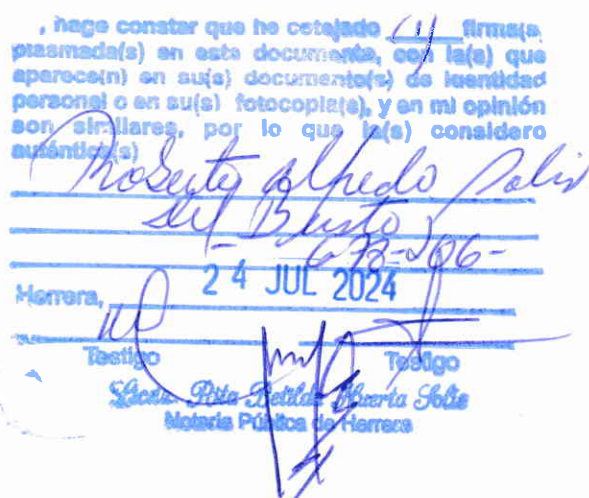 , hago constar que he cotejado (1) firma(s)
plasmada(s) en este documento, con la(s) que
aparece(n) en su(s) documento(s) de identidad
personal o en su(s) fotocopia(s), y en mi opinión
son similares, por lo que la(s) considero
auténtica(s)
Roberto Alfredo Solis
del Busto
24 JUL 2024
Herrera,
Testigo Testigo
Licda. Rita Betilda Huerta Solis
Notaria Pública de Herrera